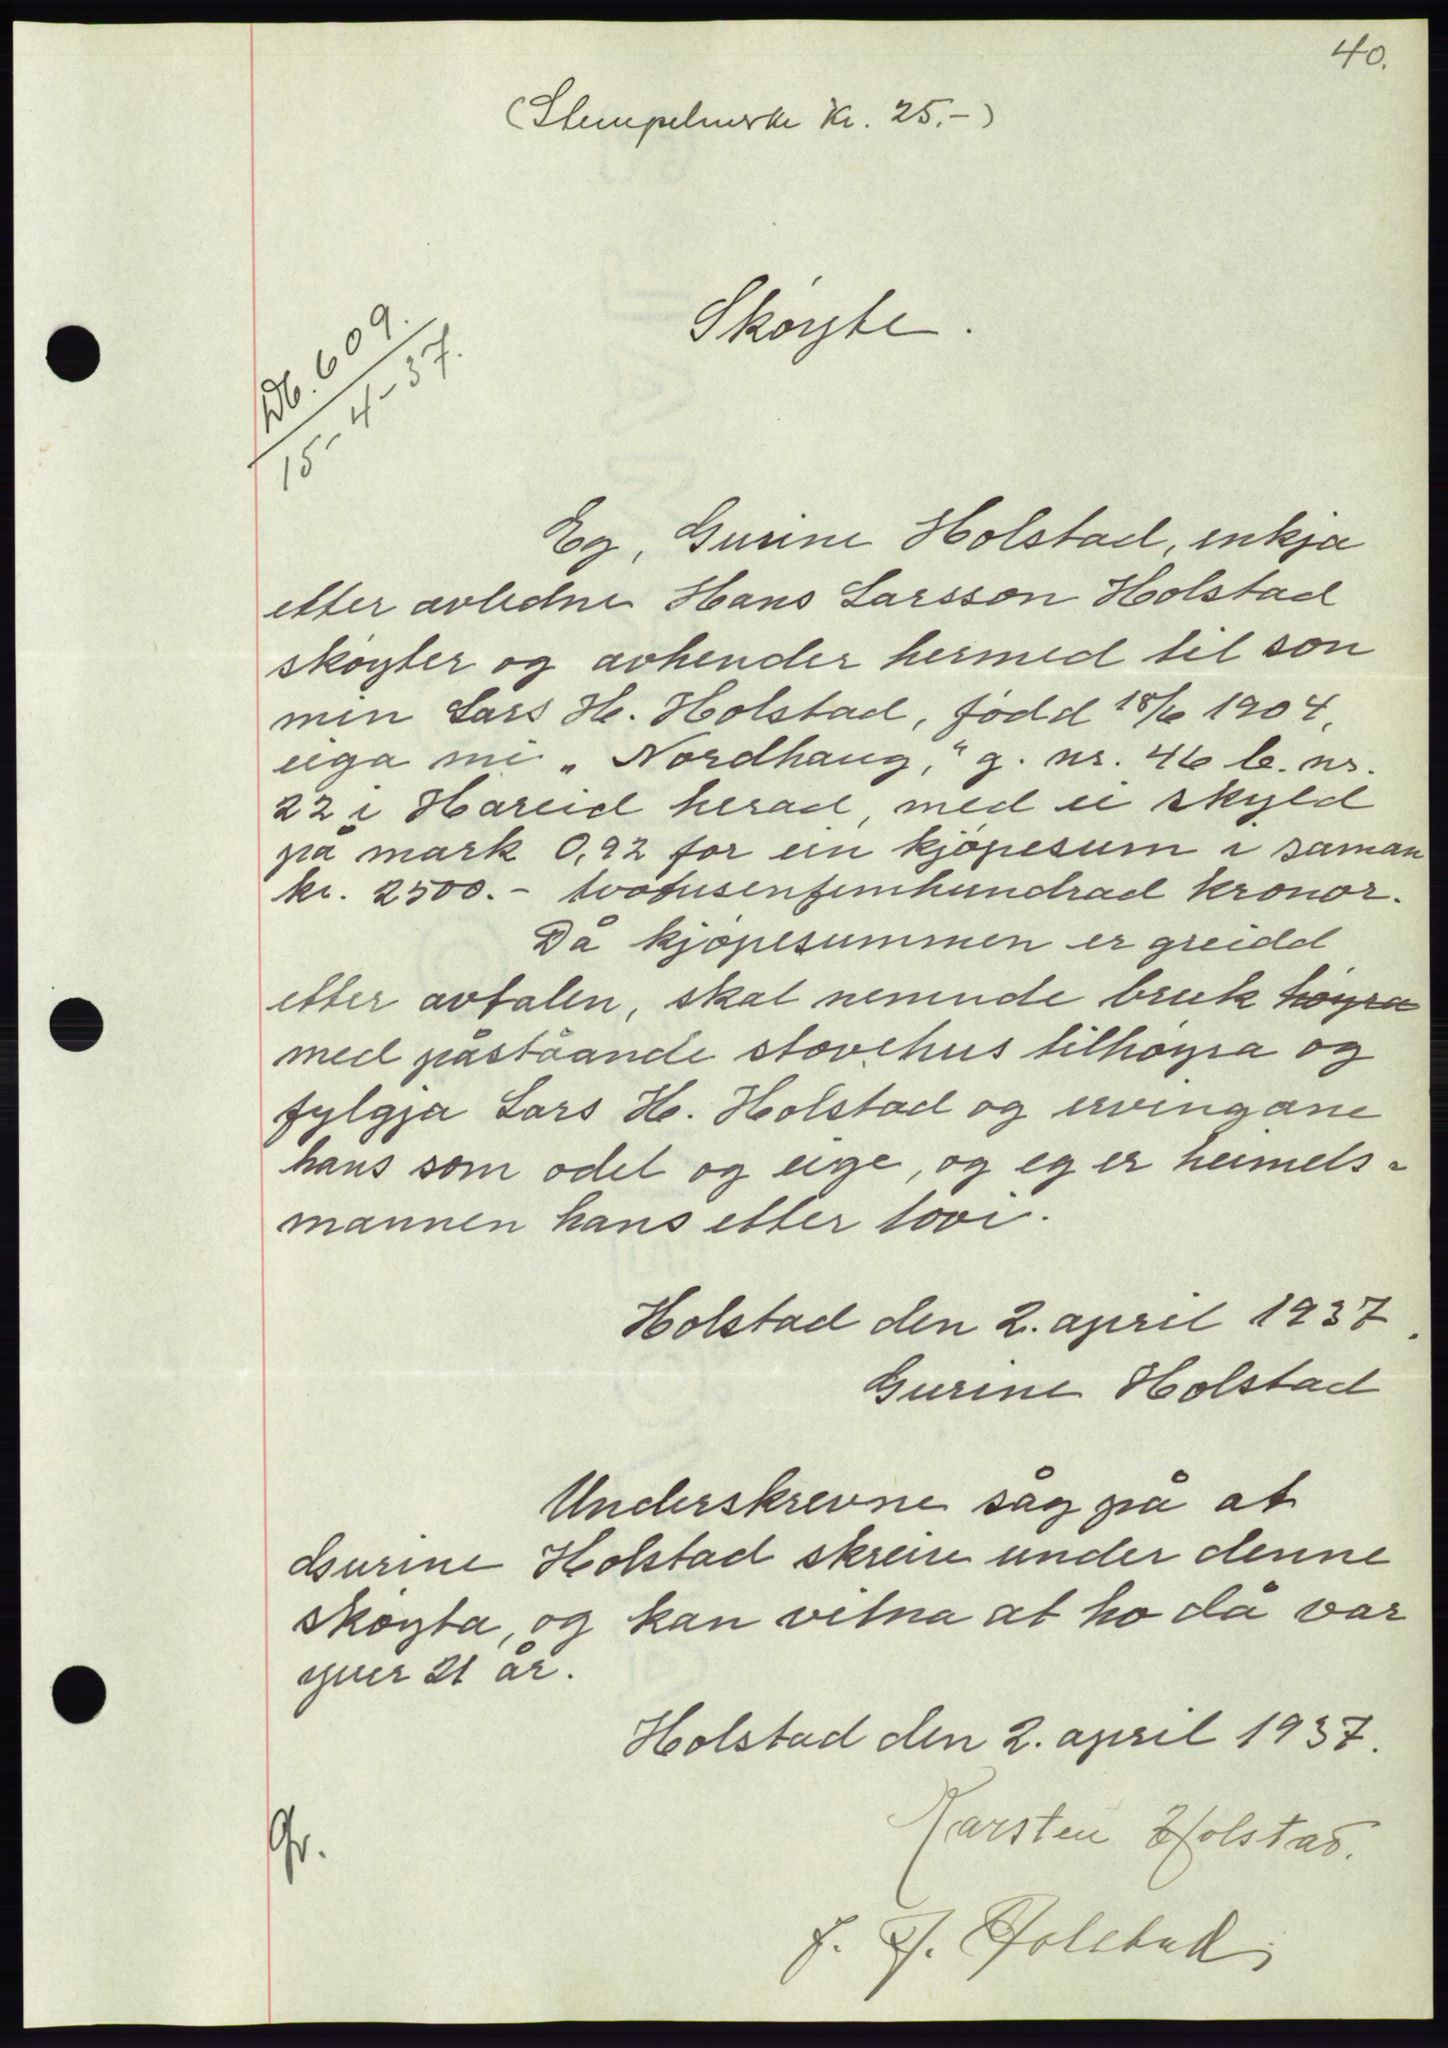 40.
(Stempelmerke kr. 25.-)
Skøyte.
Db. 609.
15-4-37.
Eg, Gurine Holstad, enkja
etter avledne Hans Larsson Holstad
skøyter og avhender hermed til son
min Lars H. Holstad, fødd 18/6 1904,
eiga mi „Nordhaug," g. nr. 46 b. nr.
22 i Hareid herad, med ei skyld
på mark 0,92 for ein kjøpesum i saman
kr. 2500.- tvotusenfemhundrad kronor.
Då kjøpesummen er greidd
etter avtalen, skal nemnde bruk høyra
med påståande stovehus tilhøyra og
fylgja Lars H. Holstad og ervingane
hans som odel og eige, og eg er heimels-
mannen hans etter lovi.
Holstad den 2. april 1937.
Gurine Holstad
Underskrevne såg på at
Gurine Holstad skreiv under denne
skøyta, og kan vitna at ho då var
yver 21 år.
Holstad den 2. april 1937.
Karsten Holstad.
Gr.
J. J. Holstad